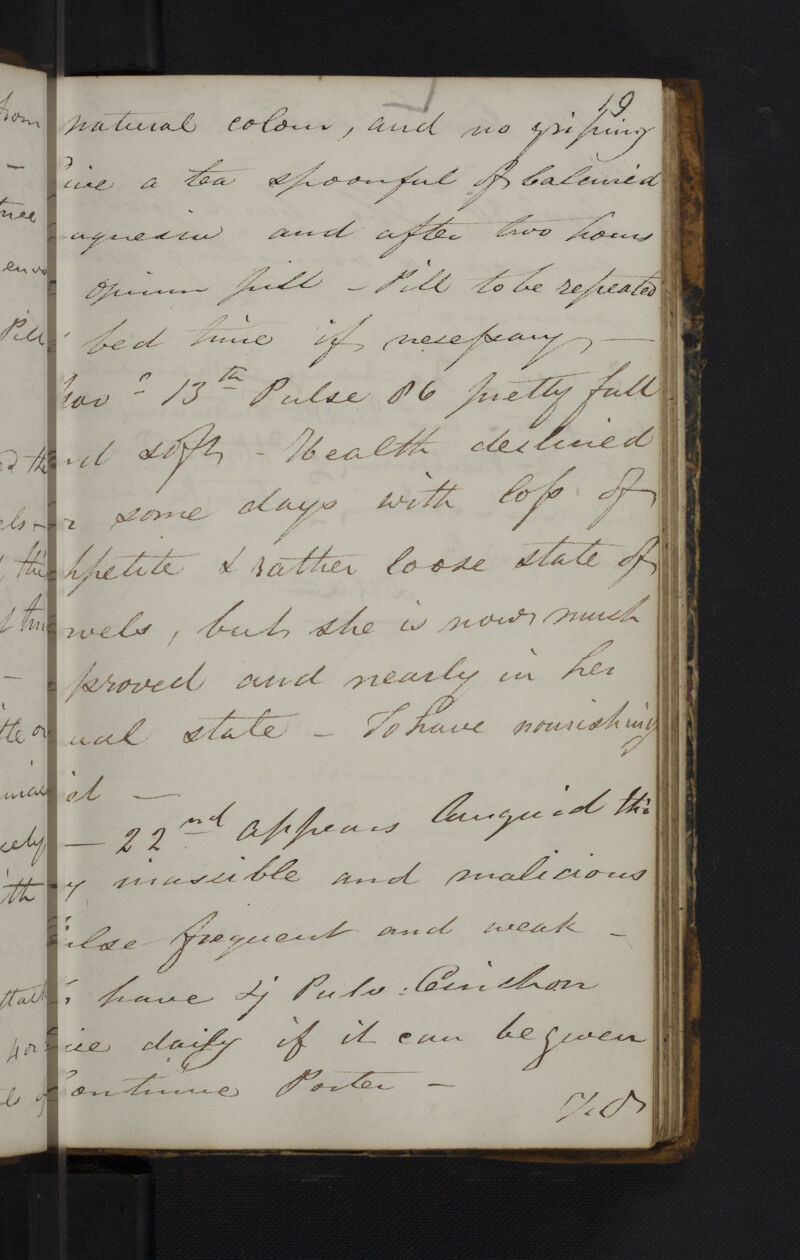 19
natural colour, and no griping
ive a tea spoonful of Calcined
agnesia and after two hours
opium pill - Pill to be repeated
bed time if nesessary -
Nov<sup>r</sup> 13<sup>th</sup> Pulse 86 pretty full
nd soft - Health declined
some days with loss of
ppetite & rather loose state of
owels, but she is now much
proved and nearly in her
ual state - To have nourishing
et -
- 22<sup>nd</sup> appears languid tho
y irascible and malicious
ulse frequent and weak -
have ʒj Pulv: Cinchon
ice daily if it can be given
Continue Porter -